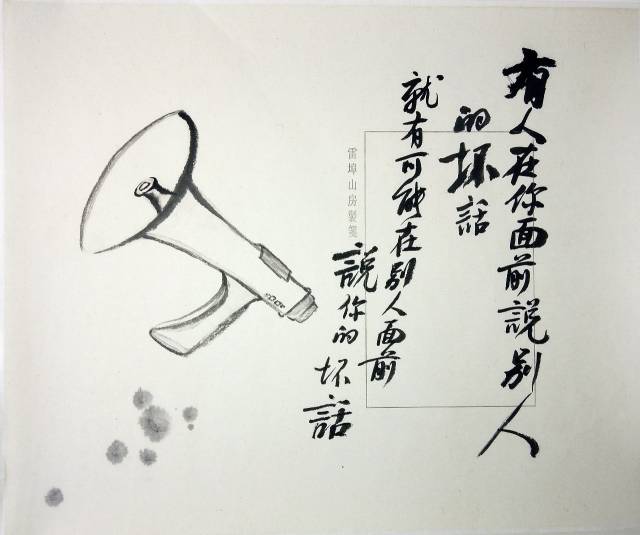 有人在你面前說别人
的坏話
就有可能在别人面前
說你的坏話
雷埠山房製箋